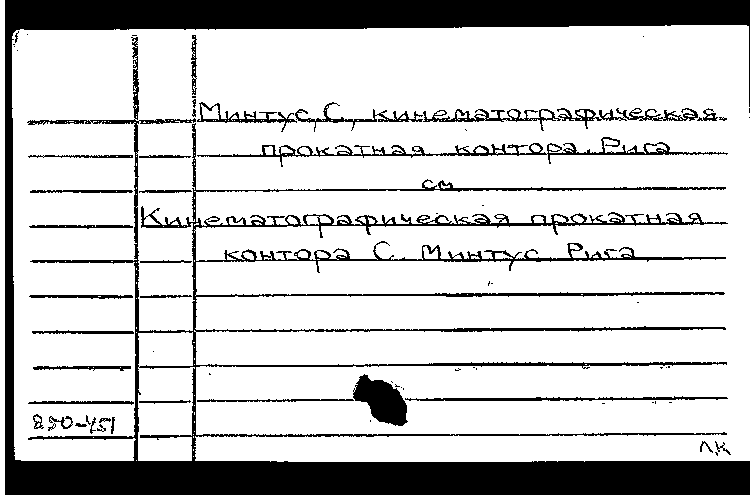 Минтус, С, кинематографическая
прокатная контора. Рига
см
Кинематографическая прокатная
контора С. Минтус. Рига
890-451
ЛК